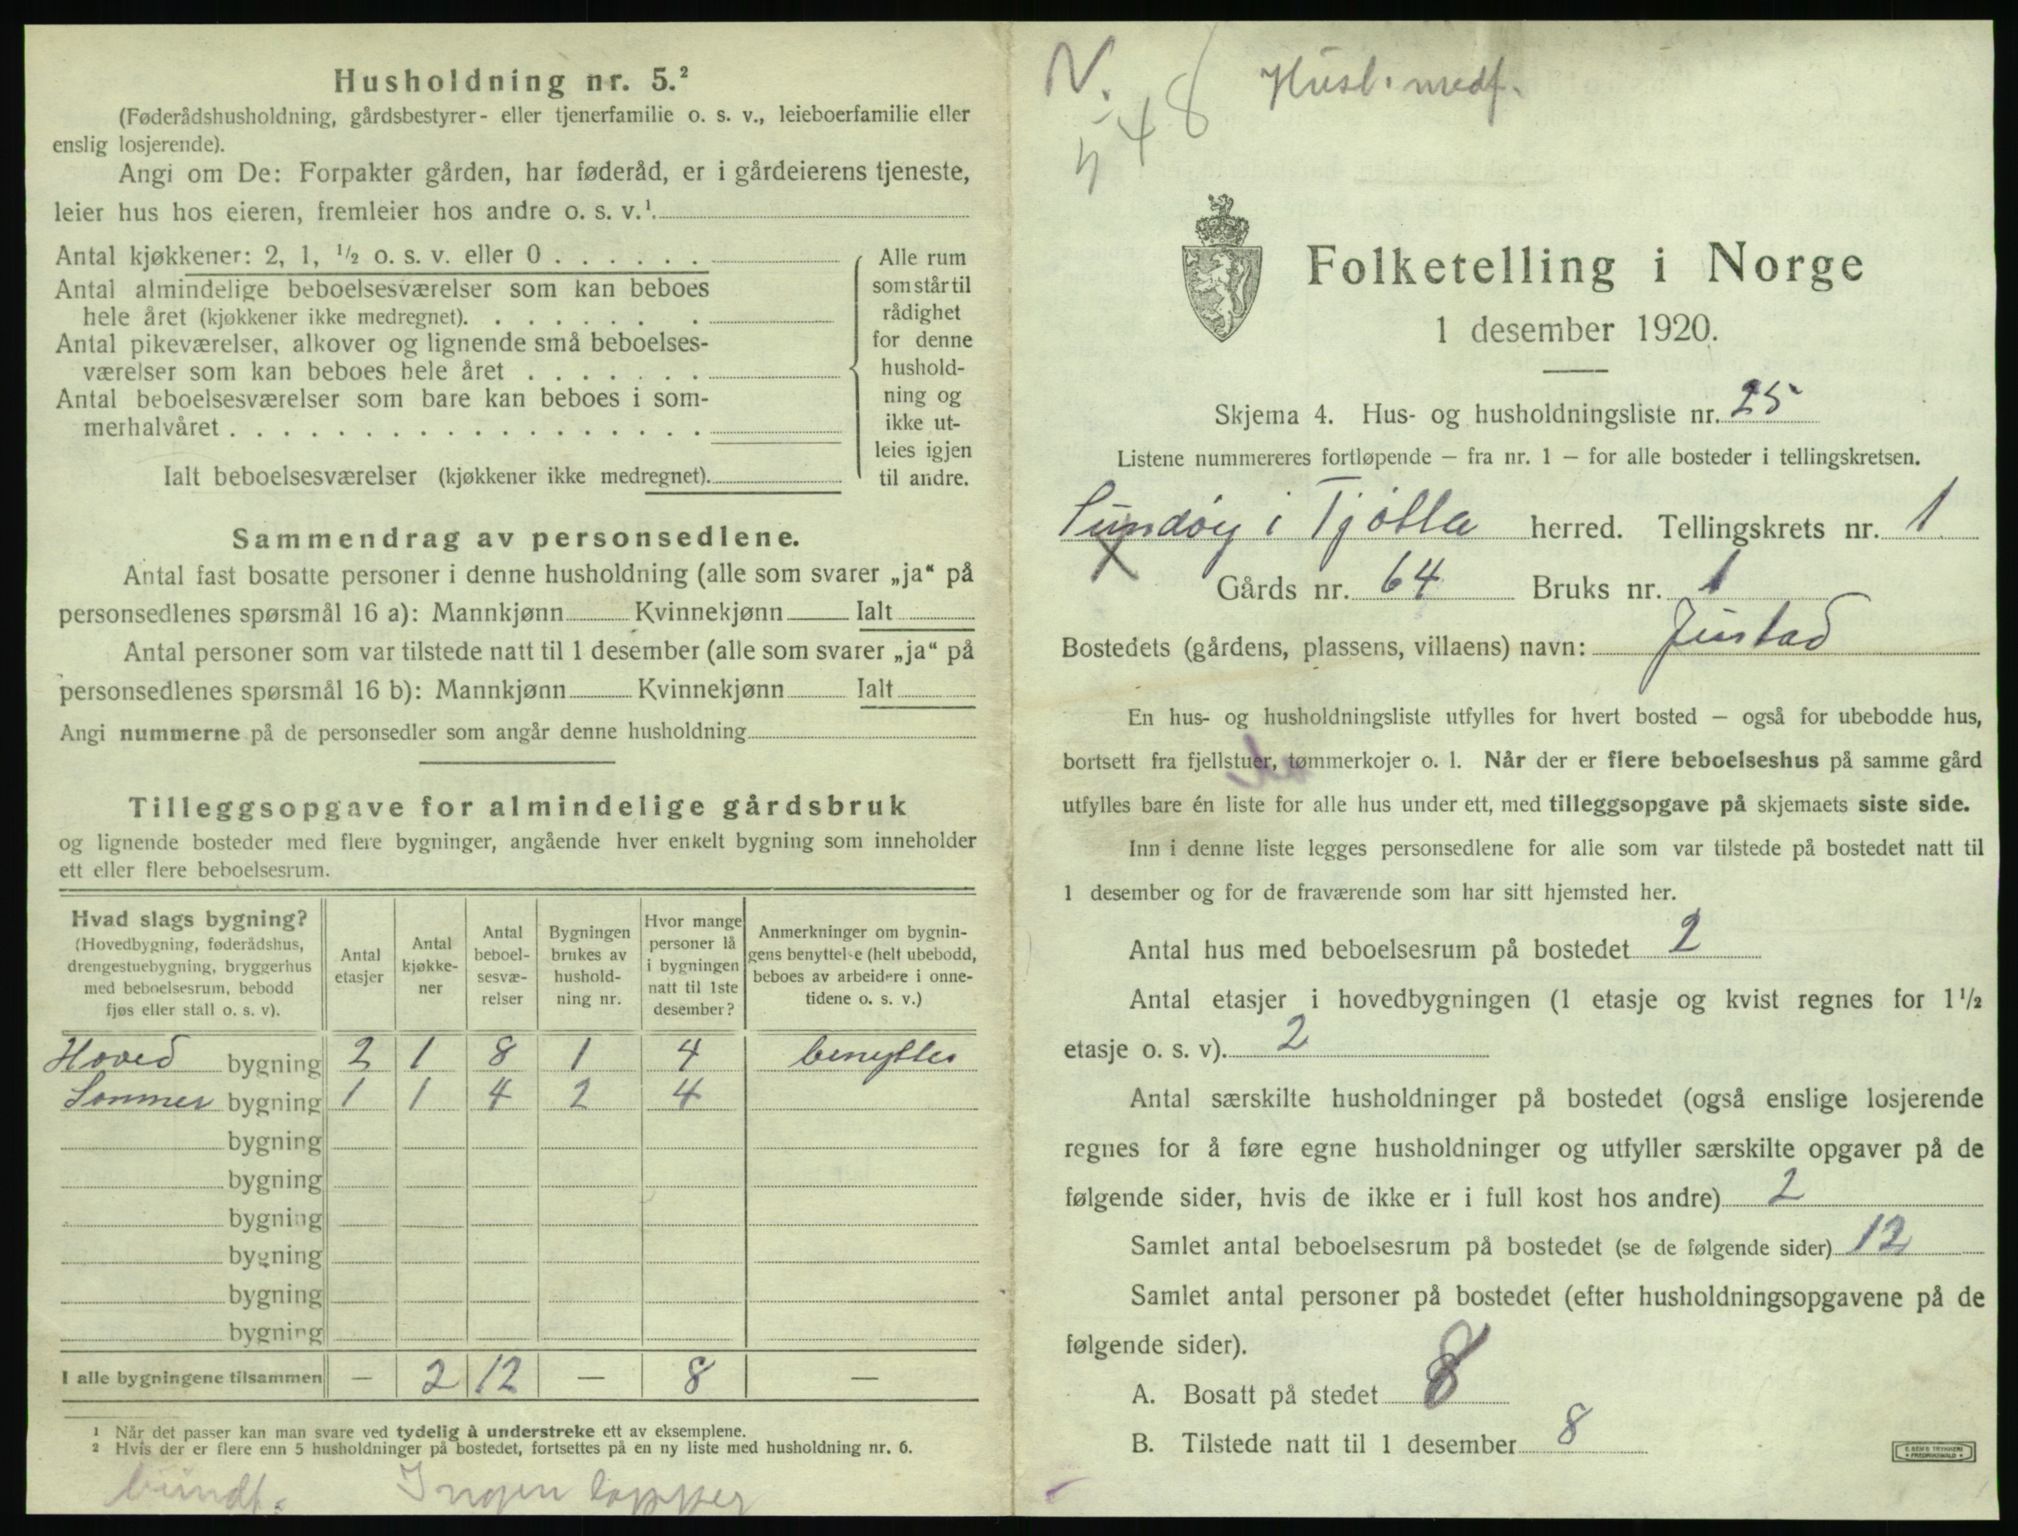 Husholdning nr. 5.²
(Føderådshusholdning, gårdsbestyrer- eller tjenerfamilie o. s. v., leieboerfamilie eller
enslig losjerende).
Angi om De: Forpakter gården, har føderåd, er i gårdeierens tjeneste,
leier hus hos eieren, fremleier hos andre o. s. v.¹
Antal kjøkkener: 2, 1, ½ o. s. v. eller 0
Antal almindelige beboelsesværelser som kan beboes
hele året (kjøkkener ikke medregnet).
Antal pikeværelser, alkover og lignende små beboelses-
værelser som kan beboes hele året
Antal beboelsesværelser som bare kan beboes i som-
merhalvåret
Ialt beboelsesværelser (kjøkkener ikke medregnet).
Alle rum
som står til
rådighet
for denne
hushold-
ning og
ikke ut-
leies igjen
til andre.
Sammendrag av personsedlene.
Antal fast bosatte personer i denne husholdning (alle som svarer „ja“ på
personsedlenes spørsmål 16 a): Mannkjønn Kvinnekjønn Ialt
Antal personer som var tilstede natt til 1 desember (alle som svarer „ja“ på
personsedlenes spørsmål 16 b): Mannkjønn Kvinnekjønn Ialt
Angi nummerne på de personsedler som angår denne husholdning
Tilleggsopgave for almindelige gårdsbruk
og lignende bosteder med flere bygninger, angående hver enkelt bygning som inneholder
ett eller flere beboelsesrum.
Hvad slags bygning?
(Hovedbygning, føderådshus,
drengestuebygning, bryggerhus
med beboelsesrum, bebodd
fjøs eller stall o. s. v).
Antal
etasjer
Antal
kjøkke-
ner
Antal
beboel-
sesvæ-
relser
Bygningen
brukes av
hushold-
ning nr.
Hvor mange
personer lå
i bygningen
natt til 1ste
desember?
Anmerkninger om bygnin-
gens benyttelse (helt ubebodd,
beboes av arbeidere i onne-
tidene o. s. v.)
Hoved bygning 2 1 8 1 4 benyttes
Sommer bygning 1 1 4 2 4
bygning
bygning
bygning
bygning
bygning
bygning
I alle bygningene tilsammen — 2 12 — 8 —
¹ Når det passer kan man svare ved tydelig å understreke ett av eksemplene.
² Hvis der er flere enn 5 husholdninger på bostedet, fortsettes på en ny liste med husholdning nr. 6.
Ingen lapper
N. 48 Husl. medf.
Folketelling i Norge
1 desember 1920.
Skjema 4. Hus- og husholdningsliste nr. 25
Listene nummereres fortløpende – fra nr. 1 – for alle bosteder i tellingskretsen.
Sundøy i Tjøtta herred. Tellingskrets nr. 1
Gårds nr. 64 Bruks nr. 1
Bostedets (gårdens, plassens, villaens) navn: Justad
En hus- og husholdningsliste utfylles for hvert bosted – også for ubebodde hus,
bortsett fra fjellstuer, tømmerkojer o. l. Når der er flere beboelseshus på samme gård
utfylles bare én liste for alle hus under ett, med tilleggsopgave på skjemaets siste side.
Inn i denne liste legges personsedlene for alle som var tilstede på bostedet natt til
1 desember og for de fraværende som har sitt hjemsted her.
Antal hus med beboelsesrum på bostedet 2
Antal etasjer i hovedbygningen (1 etasje og kvist regnes for 1½
etasje o. s. v). 2
Antal særskilte husholdninger på bostedet (også enslige losjerende
regnes for å føre egne husholdninger og utfyller særskilte opgaver på de
følgende sider, hvis de ikke er i full kost hos andre) 2
Samlet antal beboelsesrum på bostedet (se de følgende sider) 12
Samlet antal personer på bostedet (efter husholdningsopgavene på de
følgende sider).
A. Bosatt på stedet 8
B. Tilstede natt til 1 desember 8